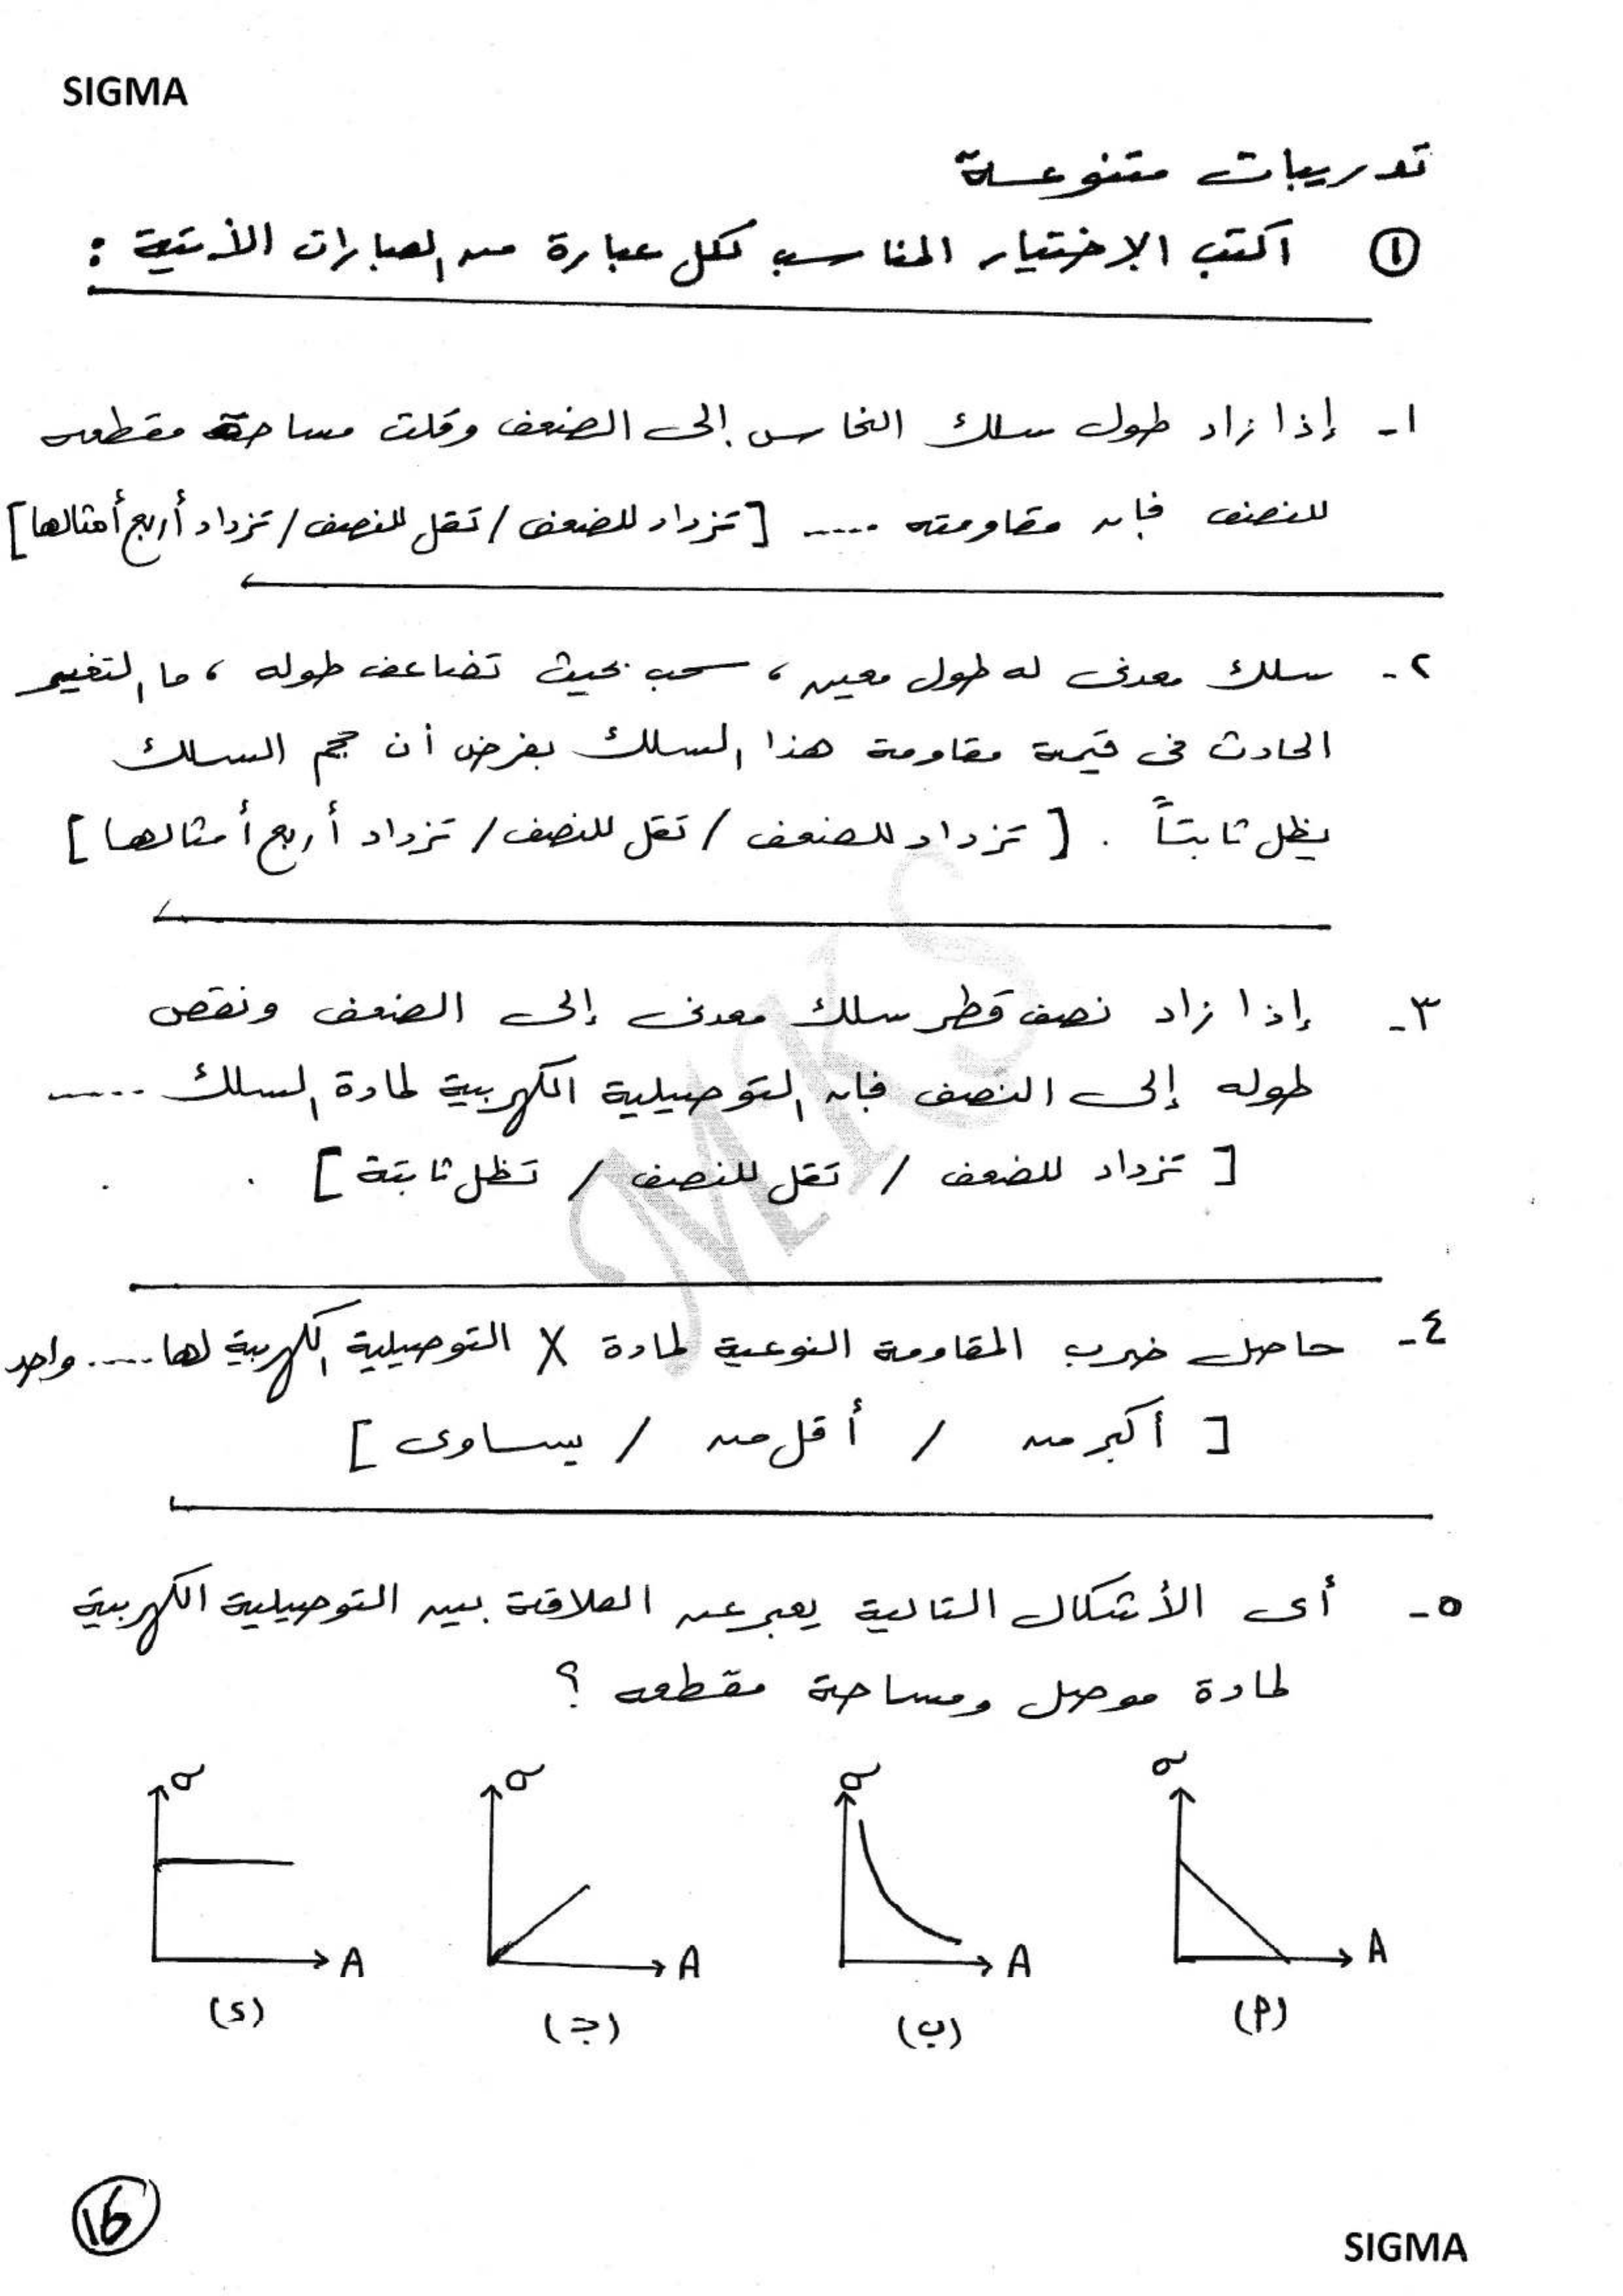 SIGMA
تدريبات متنوعة
① اكتب الاختيار المناسب لكل عبارة من العبارات الأتية :
١- إذا زاد طول سلك النحاس إلى الضعف وقلت مساحة مقطعه
للنصف فإن مقاومته ..... [تزداد للضعف / تقل للنصف / تزداد أربع أمثالها]
٢- سلك معدنى له طول معين ، سحب بحيث تضاعف طوله ، ما التغيير
الحادث فى قيمة مقاومة هذا السلك بفرض أن حجم السلك
يظل ثابتاً . [ تزداد للضعف / تقل للنصف / تزداد أربع أمثالها ]
٣- إذا زاد نصف قطر سلك معدنى إلى الضعف ونقص
طوله إلى النصف فإن التوصيلية الكهربية لمادة السلك .....
[ تزداد للضعف / تقل للنصف / تظل ثابتة ] .
٤- حاصل ضرب المقاومة النوعية لمادة X التوصيلية الكهربية لها ..... واحد
[ أكبر من / أقل من / يساوى ]
٥- أى الأشكال التالية يعبر عن العلاقة بين التوصيلية الكهربية
لمادة موصل ومساحة مقطعه ؟
σ σ σ σ
A A A A
(أ) (ب) (ج) (د)
MKS
16
SIGMA